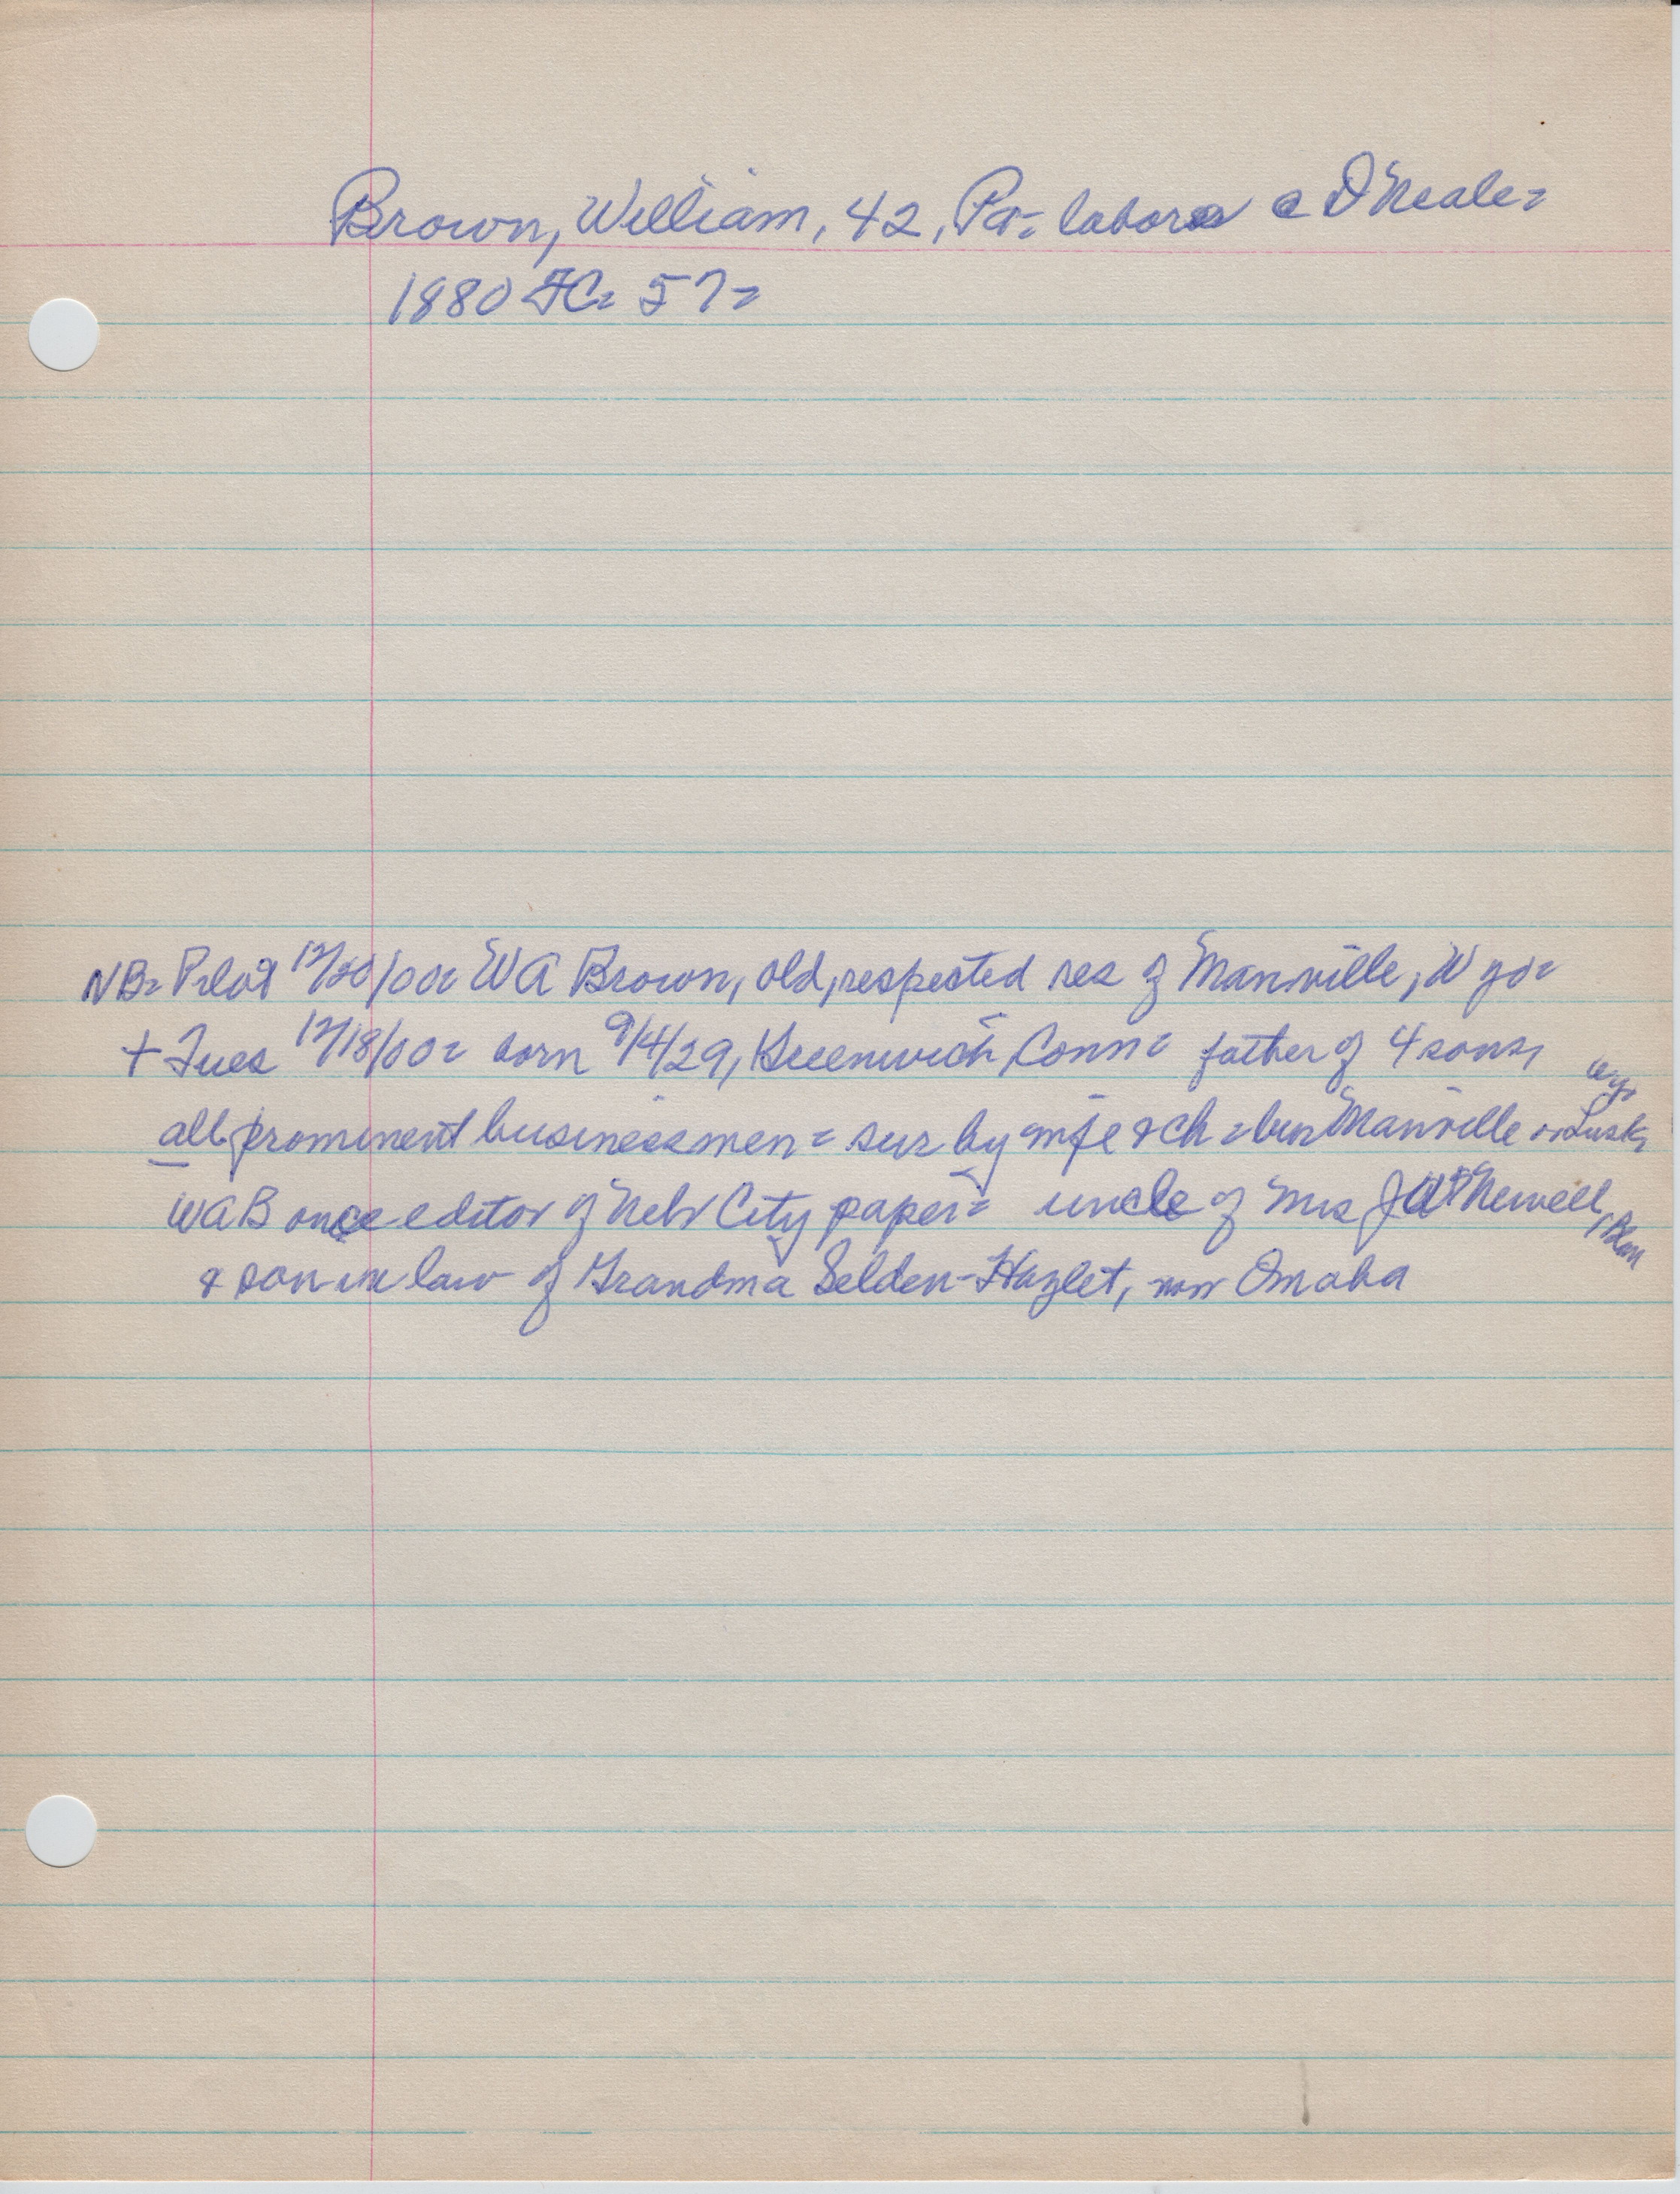 Brown, William, 42, Pa= laborer c O'Neale=
1880 FC= 57=
NB= Pilot 12/20/00= WA Brown, old, respected res of Manville, Wyo=
+ Tues 12/18/00= born 9/4/29, Greenwich, Conn= father of 4 sons,
all prominent businessmen= sur by wife & ch = bur Manville or Lusk, Wyo
WAB once editor of Neb City paper= uncle of Mrs J W Newell, Blair
& son in law of Grandma Selden-Hazlet, now Omaha